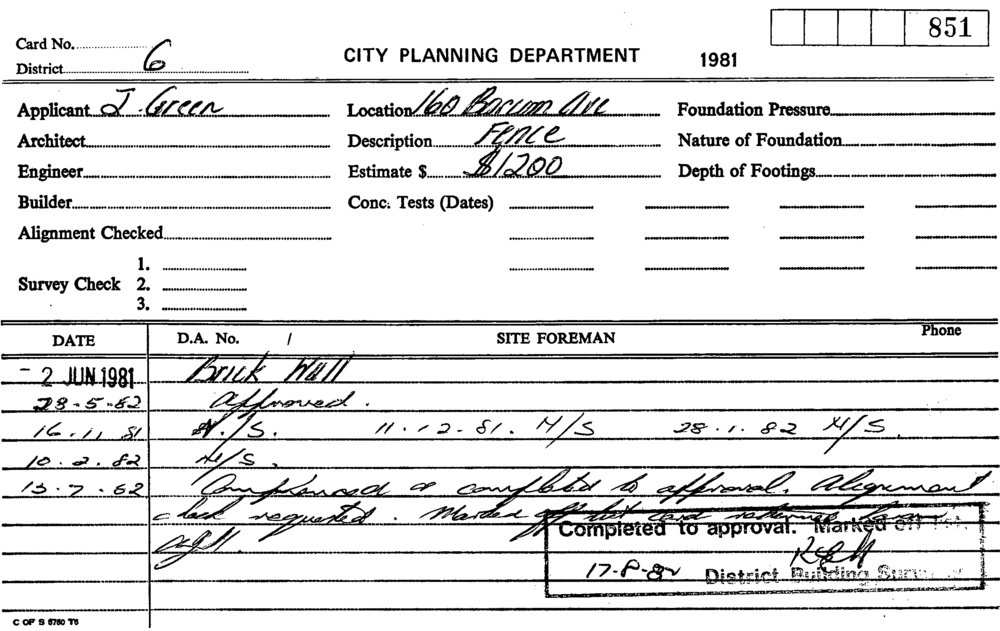 851
Card No.
District 6
CITY PLANNING DEPARTMENT 1981
Applicant J. Green Location 160 Ave Foundation Pressure
Architect Description Fence Nature of Foundation
Engineer Estimate $ $1200 Depth of Footings
Builder Conc. Tests (Dates)
Alignment Checked
Survey Check 1.
2.
3.
DATE D.A. No. / SITE FOREMAN Phone
- 2 JUN 1981 Brick Wall
28-5-82 Approved.
16.11.81 N/S. 11-12-81. N/S 28.1.82 N/S.
10.2.82 N/S.
13-7-82 completed to approval. Alignment
check requested. Marked off
Completed to approval. Marked off list.
17-8-82 District Building Surveyor
C OF S 5760 T6